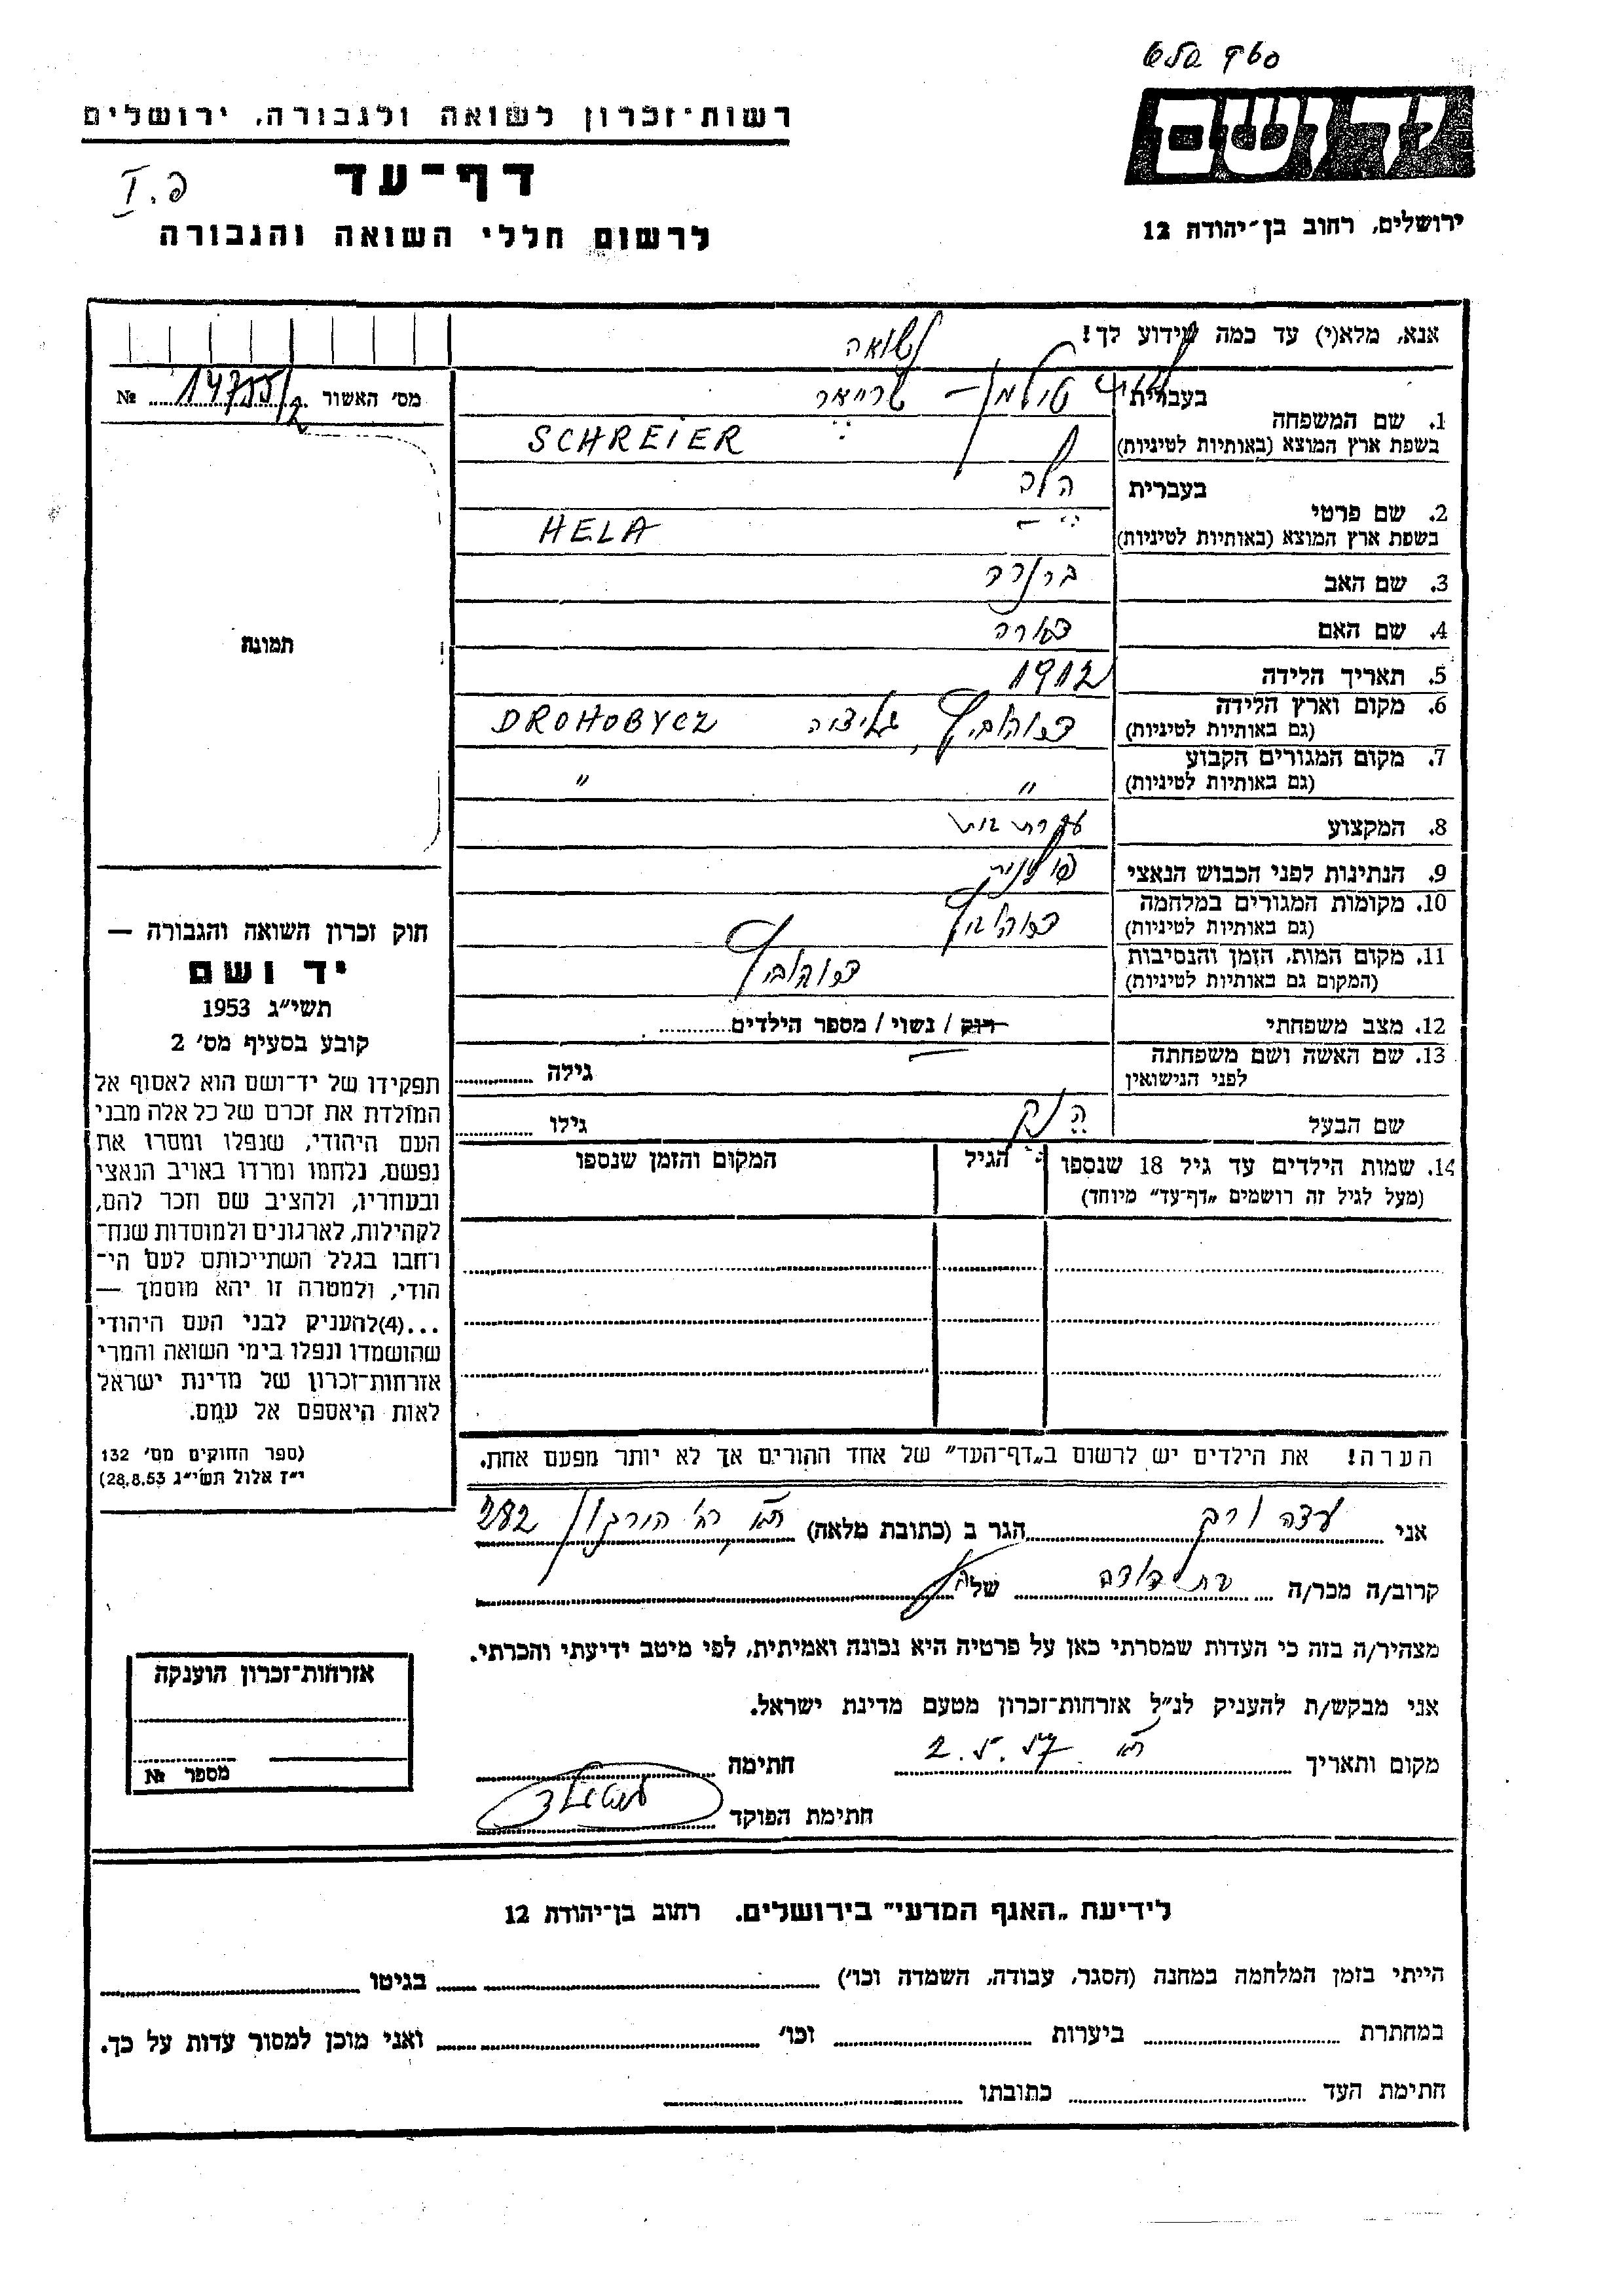 ידושם
ירושלים, רחוב בן־יהודה 12
רשות־זכרון לשואה ולגבורה, ירושלים
דף־עד
לרשום חללי השואה והגבורה
פ. I
אנא, מלא(י) עד כמה שידוע לך!
מס׳ האשור № 14755/2
לנשואה
1. שם המשפחה
בעברית שרייאר
בשפת ארץ המוצא (באותיות לטיניות) SCHREIER
2. שם פרטי
בעברית הלה
בשפת ארץ המוצא (באותיות לטיניות) HELA
3. שם האב
4. שם האם
5. תאריך הלידה 1912
6. מקום וארץ הלידה
(גם באותיות לטיניות) דרוהוביץ, גליציה DROHOBYCZ
7. מקום המגורים הקבוע
(גם באותיות לטיניות) " "
8. המקצוע עקרת בית
9. הנתינות לפני הכבוש הנאצי פולנית
10. מקומות המגורים במלחמה
(גם באותיות לטיניות) דרוהוביץ
11. מקום המות, הזמן והנסיבות
(המקום גם באותיות לטיניות) דרוהוביץ
12. מצב משפחתי רוק / נשוי / מספר הילדים
13. שם האשה ושם משפחתה
לפני הנישואין גילה
שם הבעל גילו
14. שמות הילדים עד גיל 18 שנספו הגיל המקום והזמן שנספו
(מעל לגיל זה רושמים „דף־עד" מיוחד)
הערה! את הילדים יש לרשום ב„דף־העד" של אחד ההורים אך לא יותר מפעם אחת.
תמונה
חוק זכרון השואה והגבורה —
יד ושם
תשי״ג 1953
קובע בסעיף מס׳ 2
תפקידו של יד־ושם הוא לאסוף אל
המולדת את זכרם של כל אלה מבני
העם היהודי, שנפלו ומסרו את
נפשם, נלחמו ומרדו באויב הנאצי
ובעוזריו, ולהציב שם וזכר להם,
לקהילות, לארגונים ולמוסדות שנח־
רבו בגלל השתייכותם לעם הי־
הודי, ולמטרה זו יהא מוסמך —
...(4)להעניק לבני העם היהודי
שהושמדו ונפלו בימי השואה והמרי
אזרחות־זכרון של מדינת ישראל
לאות היאספם אל עמם.
(ספר החוקים מס׳ 132
י״ז אלול תשי״ג 28.8.53)
אני הגר ב (כתובת מלאה) ת״א 282
קרוב/ה מכר/ה של
מצהיר/ה בזה כי העדות שמסרתי כאן על פרטיה היא נכונה ואמיתית, לפי מיטב ידיעתי והכרתי.
אני מבקש/ת להעניק לנ״ל אזרחות־זכרון מטעם מדינת ישראל.
מקום ותאריך ת״א 2.5.57 חתימה
חתימת הפוקד
אזרחות־זכרון הוענקה
מספר №
לידיעת „האגף המדעי" בירושלים. רחוב בן־יהודה 12
הייתי בזמן המלחמה במחנה (הסגר, עבודה, השמדה וכו׳) בגיטו
במחתרת ביערות וכו׳ ואני מוכן למסור עדות על כך.
חתימת העד כתובתו